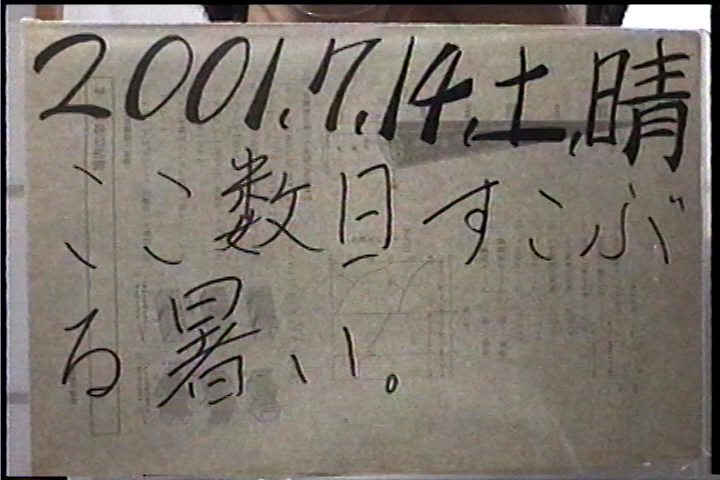 2001.7.14.土.晴
ここ数日すこぶ
る暑い。